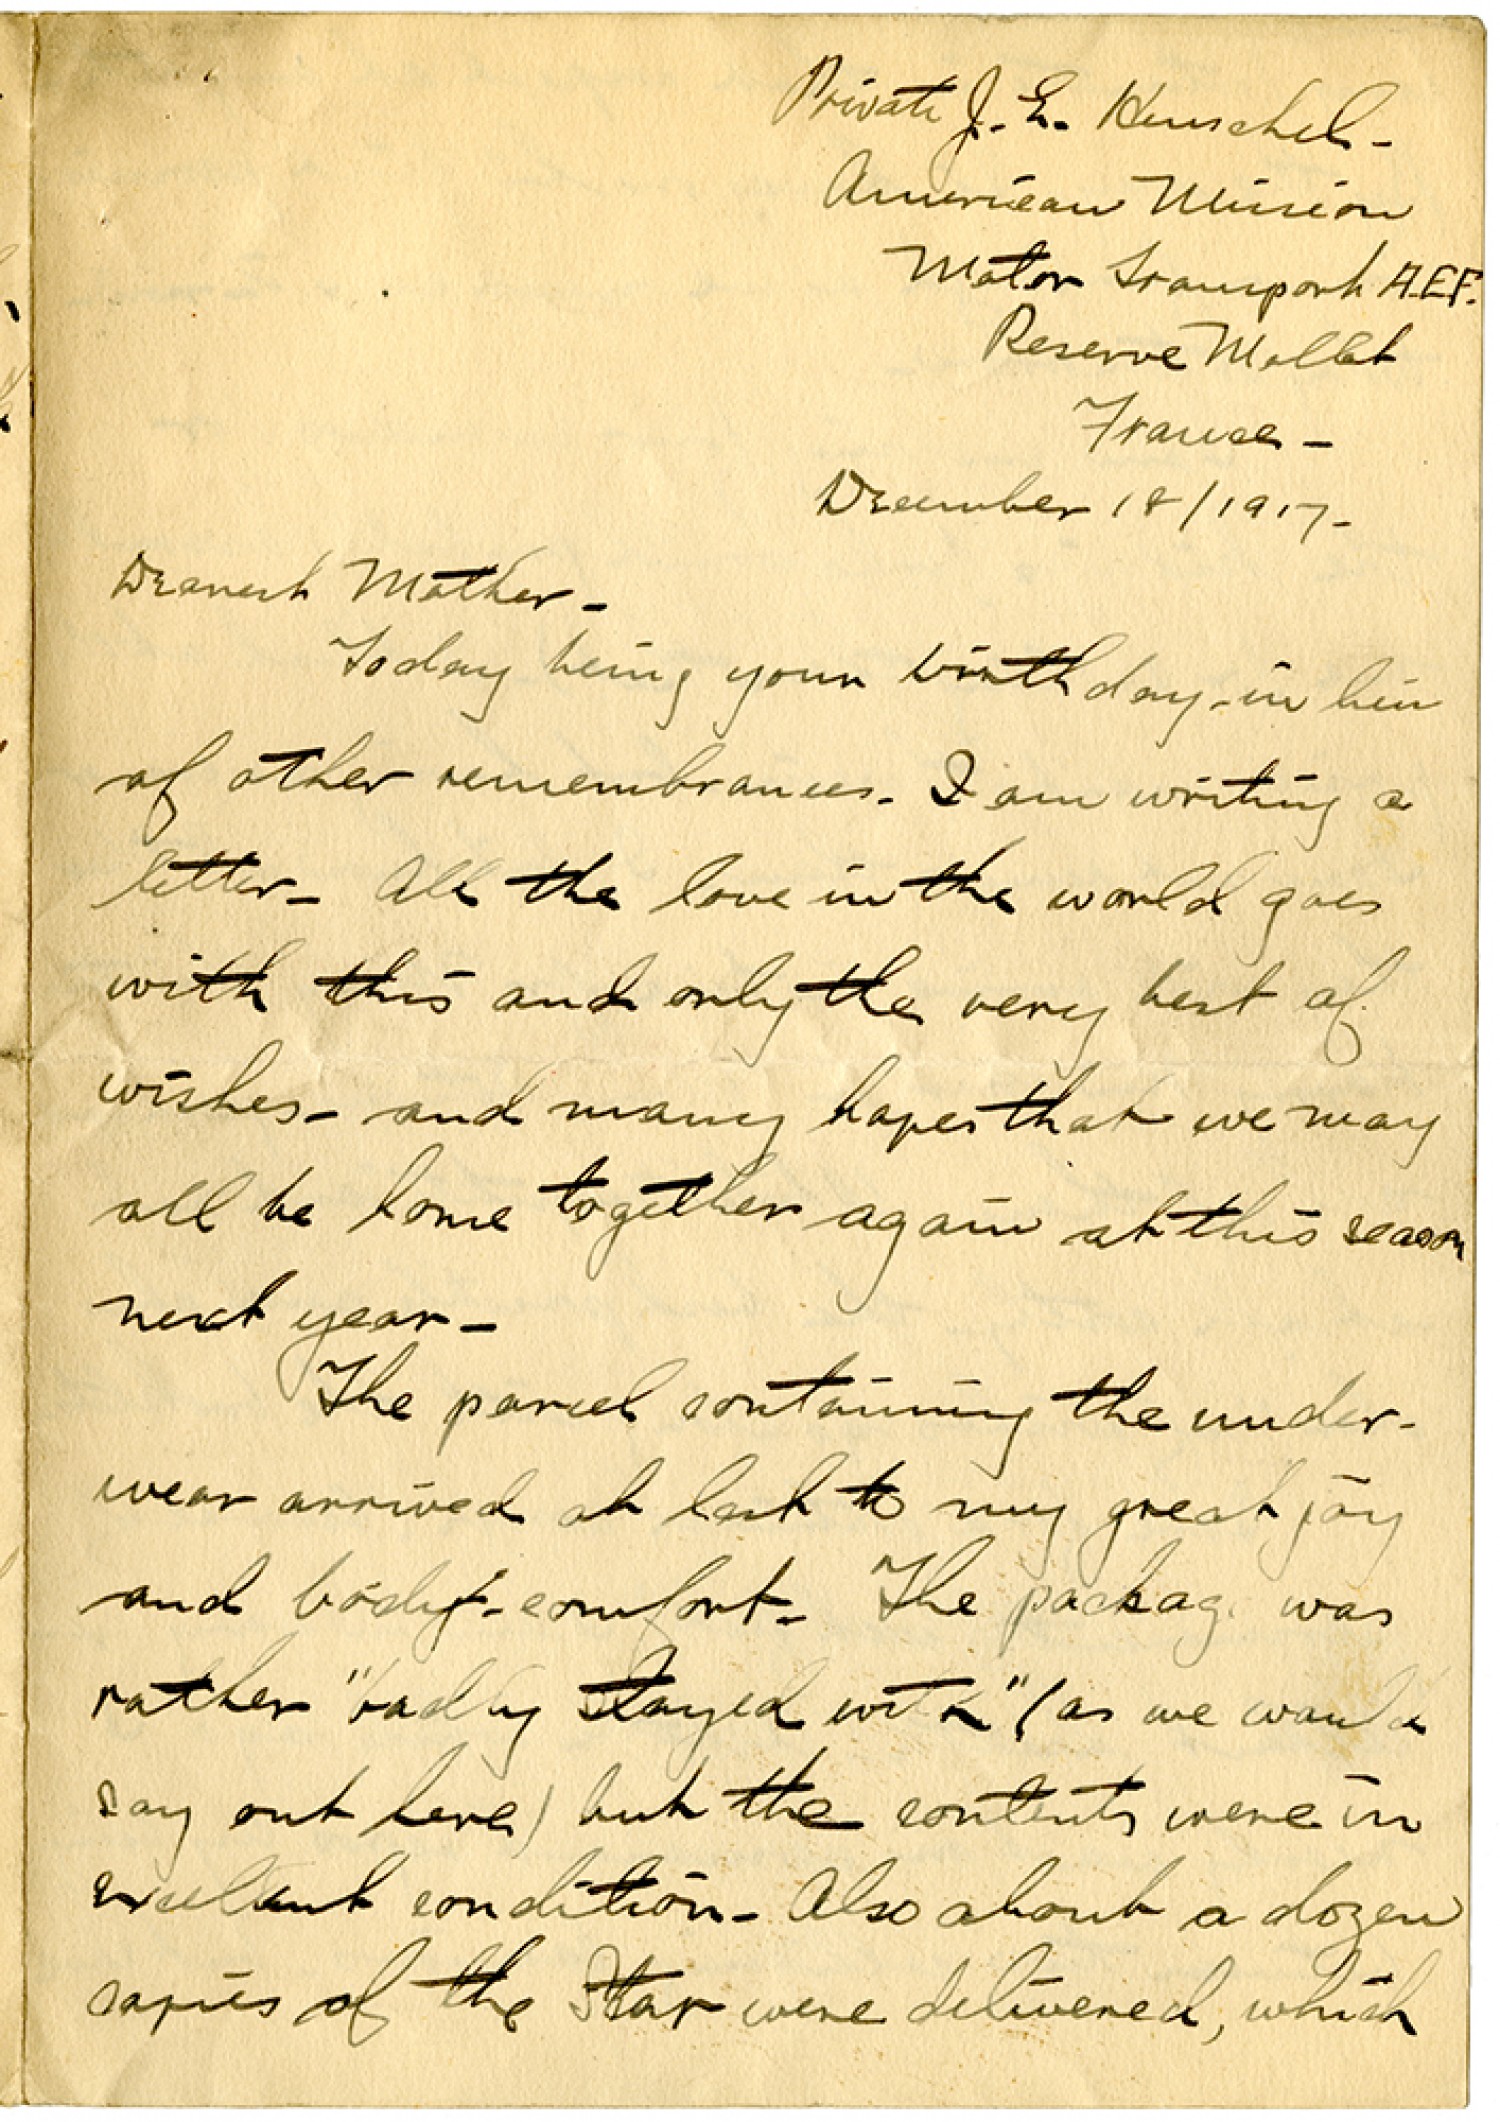 Private J. E. Henschel -
American Mission
Motor Transport A.E.F.
Reserve Mallet
France -
December 18/1917 -
Dearest Mother -
Today being your birthday - in lieu
of other remembrances - I am writing a
letter - All the love in the world goes
with this and only the very best of
wishes - and many hopes that we may
all be home together again at this season
next year -
The parcel containing the under-
wear arrived at last to my great joy
and body - comfort - The package was
rather "badly stayed with" (as we would
say out here) but the contents were in
excellent condition - Also about a dozen
copies of the Star were delivered, which